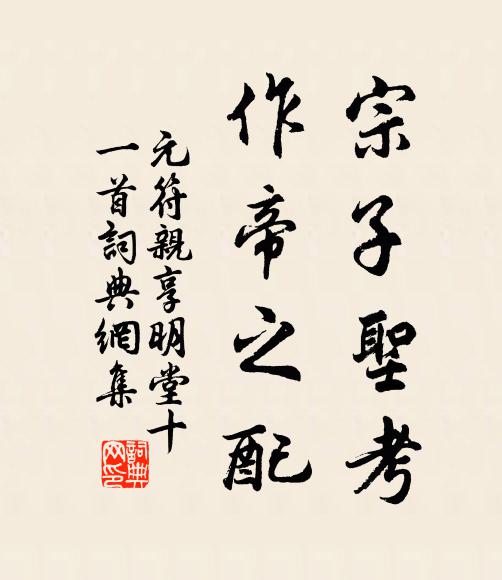 宗子聖考
作帝之配
元符親享明堂十
一首詞典網集
詞典
网印